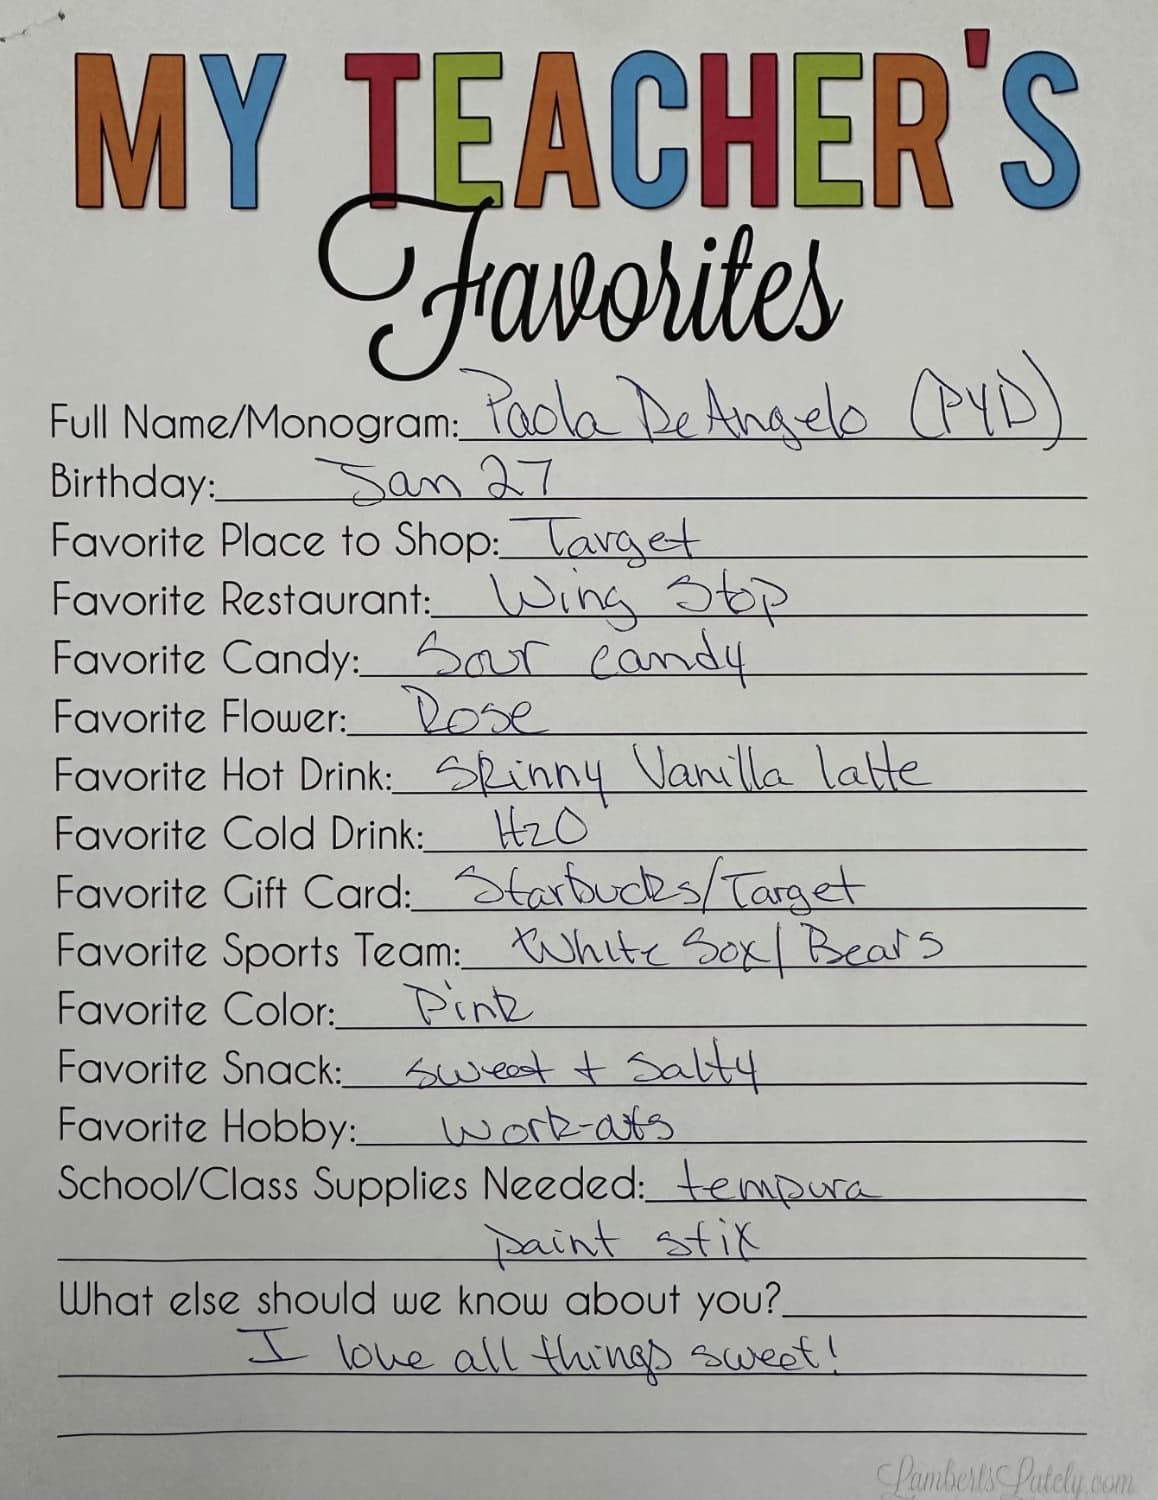 MY TEACHER'S
Favorites
Full Name/Monogram: Paola DeAngelo (PYD)
Birthday: Jan 27
Favorite Place to Shop: Target
Favorite Restaurant: Wing Stop
Favorite Candy: Sour candy
Favorite Flower: Rose
Favorite Hot Drink: Skinny Vanilla latte
Favorite Cold Drink: H2O
Favorite Gift Card: Starbucks/Target
Favorite Sports Team: White Sox/ Bears
Favorite Color: Pink
Favorite Snack: sweet + salty
Favorite Hobby: work-outs
School/Class Supplies Needed: tempura
paint stix
What else should we know about you?
I love all things sweet!
LambertsLately.com